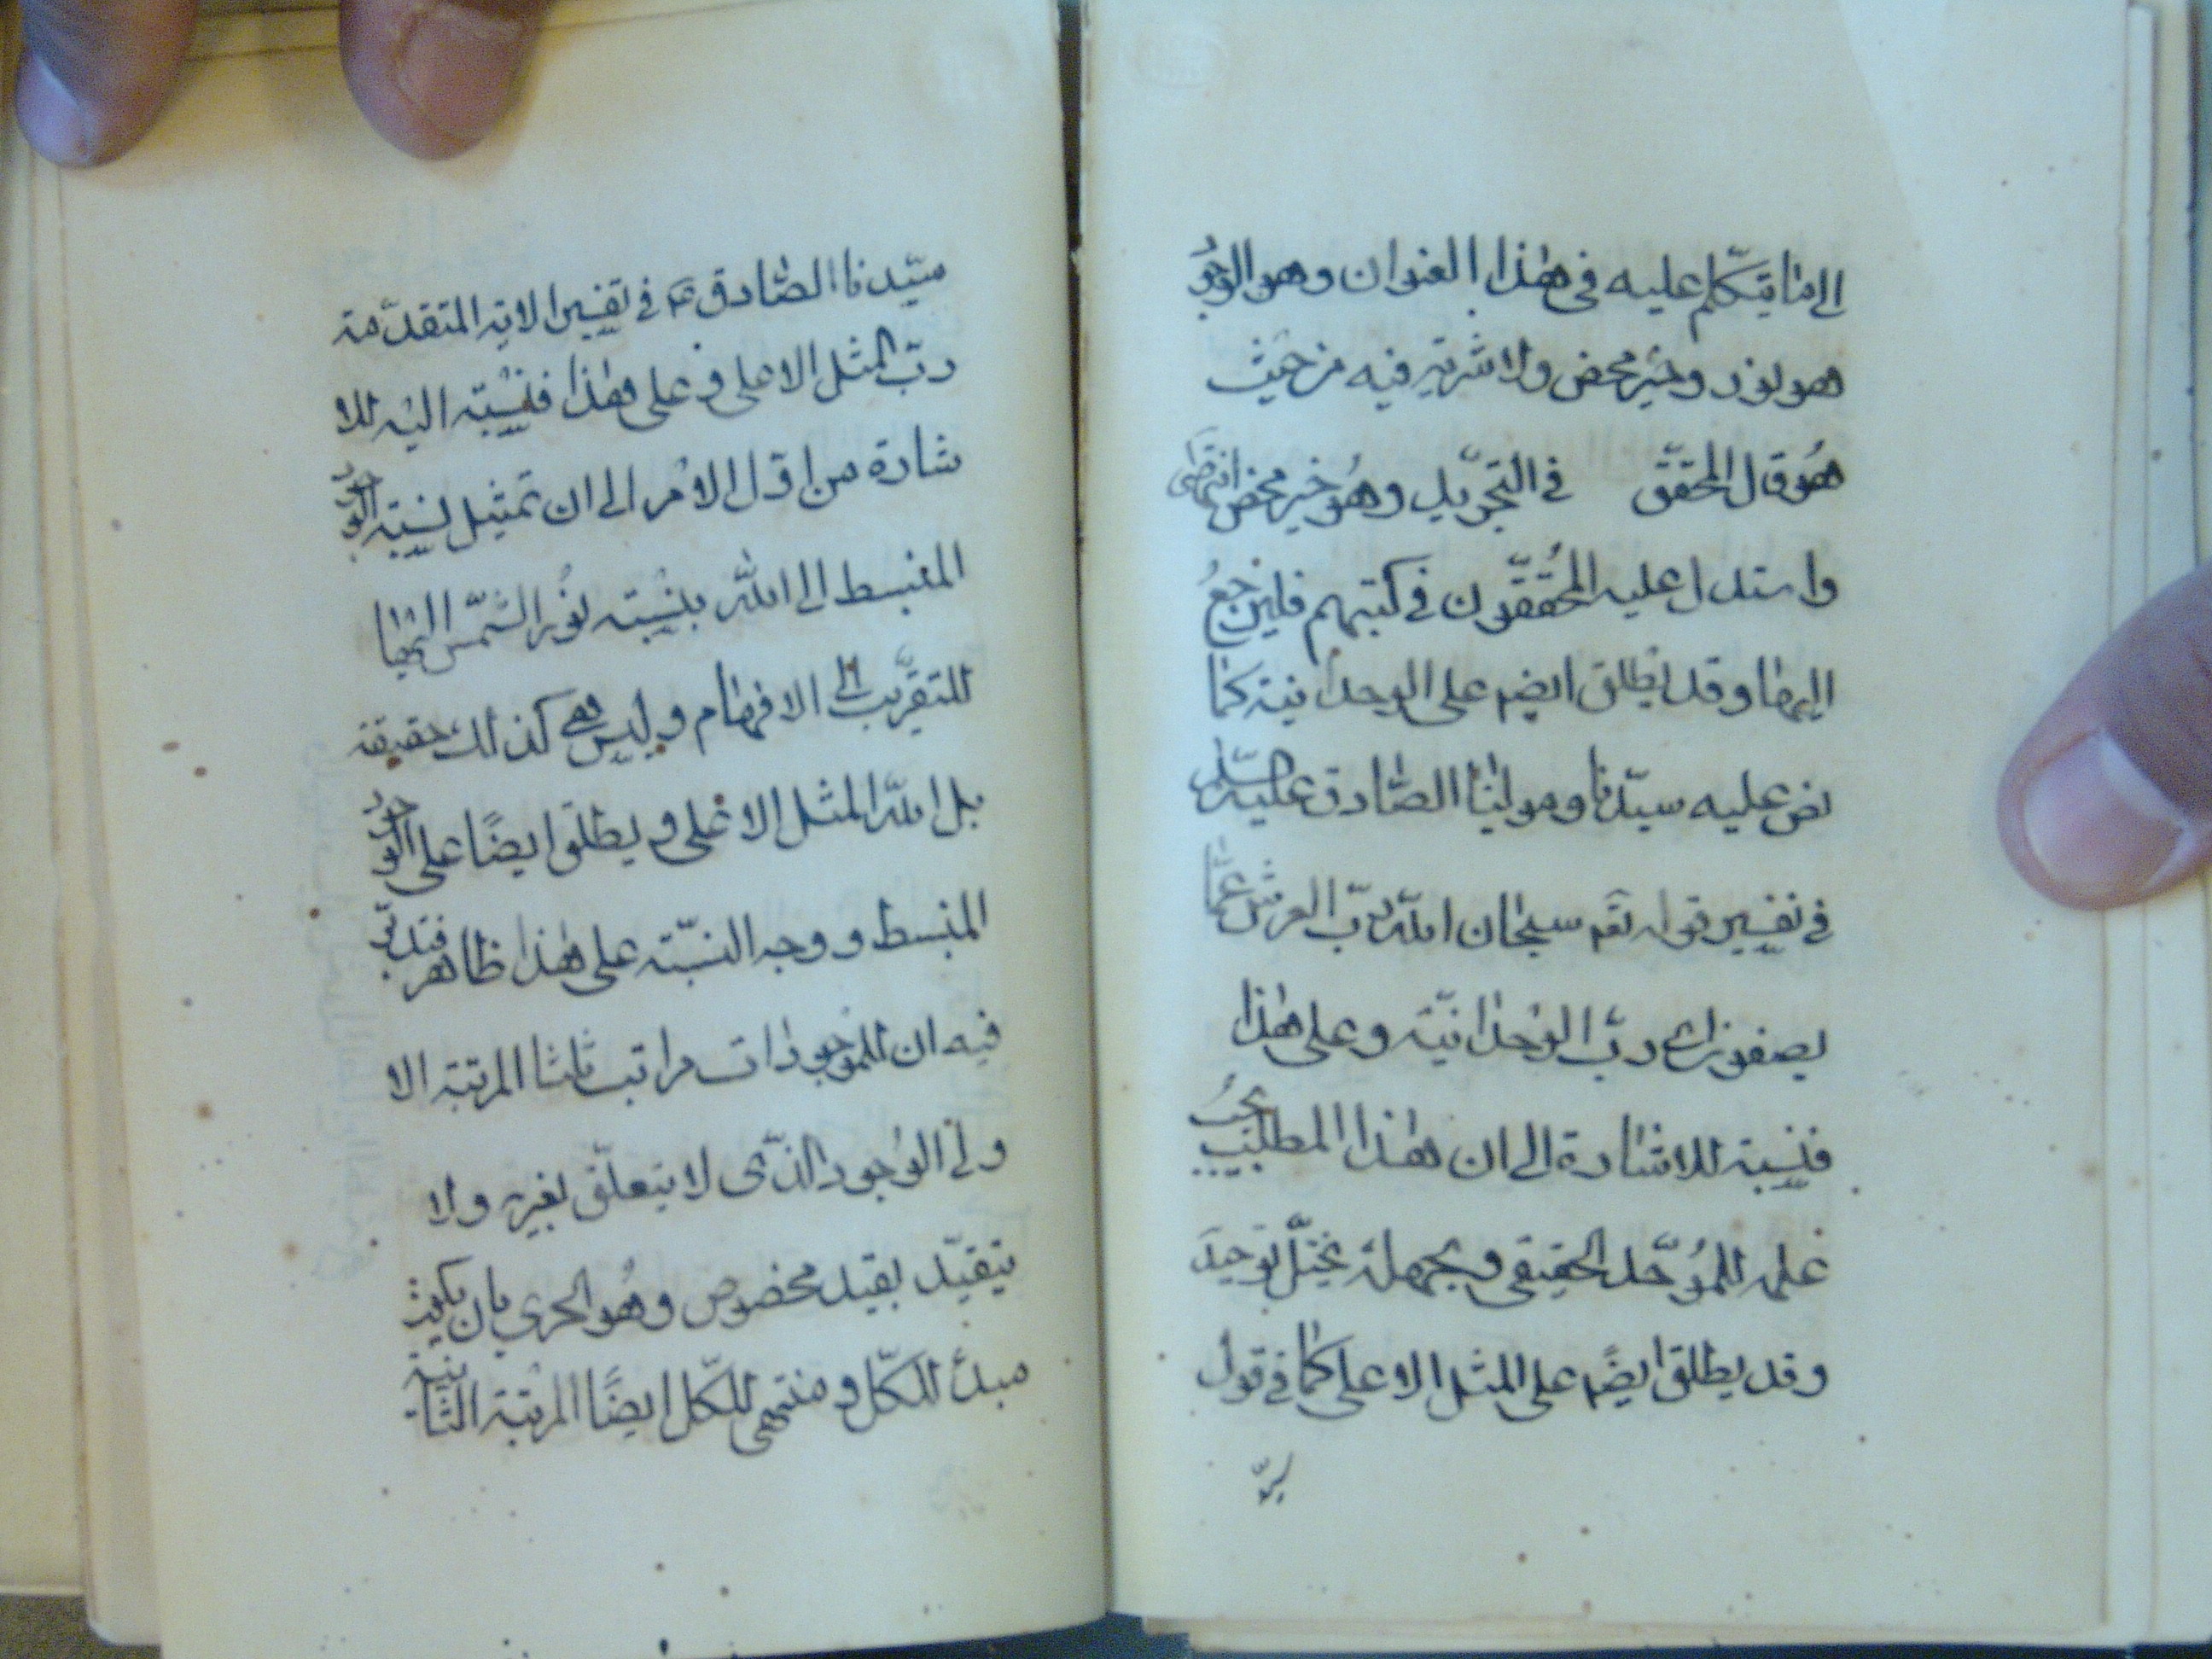 الى ما يتكلم عليه فى هذا العنوان وهو الوجود
هو نور وخير محض ولا شرية فيه من حيث
هو قال المحقق فى التجريد وهو خير محض انتهى
واستدل عليه المحققون فى كتبهم فليرجع
اليها وقد يطلق ايضم على الوحدانية كما
نص عليه سيدنا ومولينا الصادق عليه السلام
فى تفسير قوله تعم سبحان الله رب العرش عما
يصفون اى رب الوحدانية وعلى هذا
فنسبة للاشارة الى ان هذا المطلب يجب
علمه للموحد الحقيقى وبجهله يختل توحيده
وقد يطلق ايضم على المثل الاعلى كما فى قول
سيدنا الصادق ع فى تفسير الاية المتقدمة
رب المثل الاعلى وعلى هذا فنسبته اليه للا
شارة من اول الامر الى ان تمثيل نسبة الوجود
المنبسط الى الله بنسبته نور الشمس اليها
للتقريب الى الافهام وليس هى كذلك حقيقة
بل الله المثل الاعلى ويطلق ايضًا على الوجود
المنبسط ووجه النسبة على هذا ظاهر فتدبر
فيه ان للموجودات مراتب ثلثا المرتبة الا
ولى الوجود الذى لا يتعلق بغيره ولا
يتقيد بقيد مخصوص وهو الحرى بان يكون
مبدأ للكل ومنتهى للكل ايضًا المرتبة الثانية